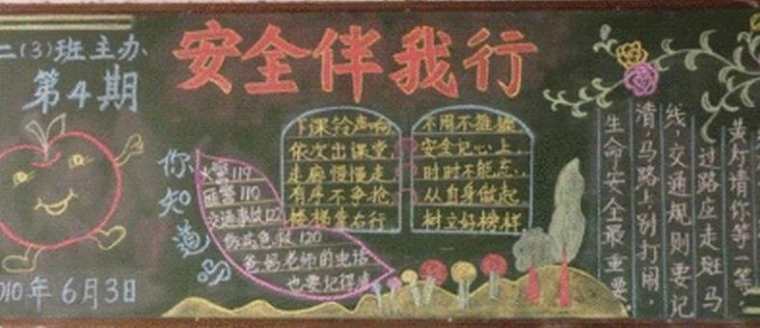 二(3)班主办
第4期
安全伴我行
2010年6月3日
你知道吗
火警119
匪警110
交通事故122
伤病急救120
爸妈老师的电话
也要记得清
下课铃声响
依次出课堂
走廊慢慢走
有序不争抢
楼梯靠右行
安全记心上
时时不能忘
从自身做起
树立好榜样
黄灯请你等一等,
过路应走斑马
线,交通规则要记
清,马路上别打闹,
生命安全最重要